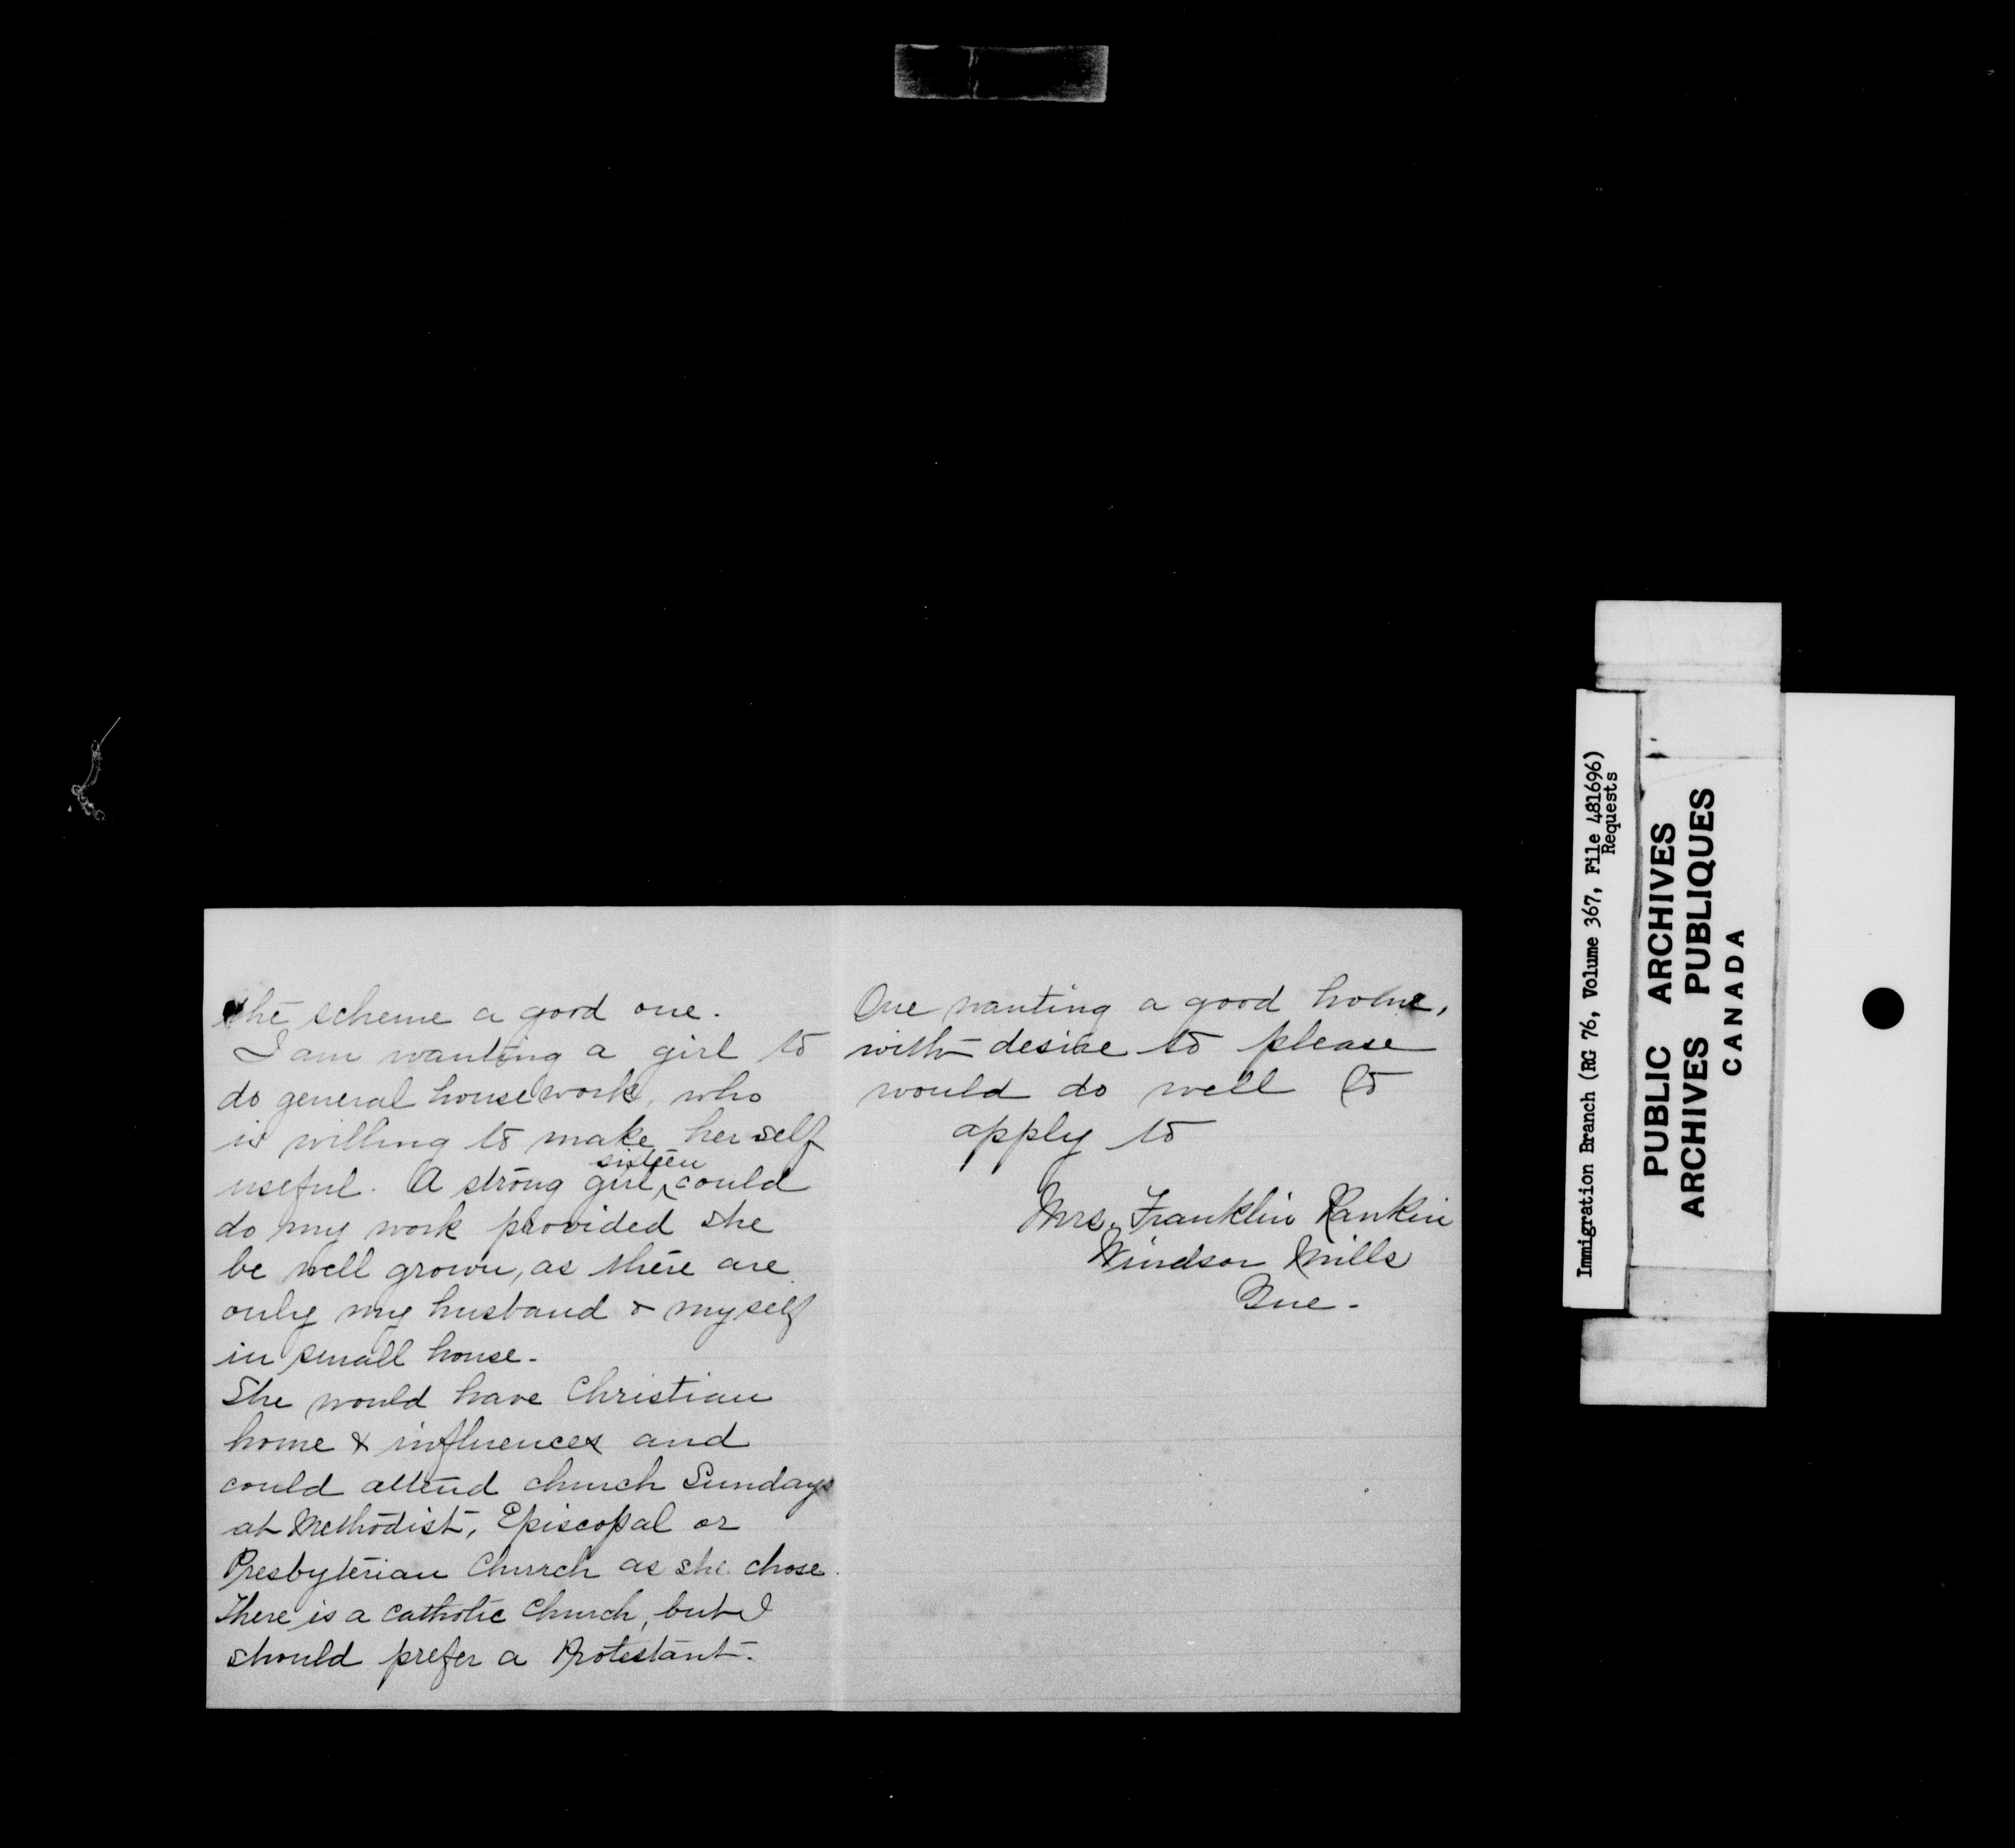 the scheme a good one.
I am wanting a girl to
do general housework, who
is willing to make herself
useful. A strong girl, sixteen could
do my work provided she
be well grown, as there are
only my husband & myself
in small house.
She would have Christian
home & influences and
could attend church Sundays
at Methodist, Episcopal or
Presbyterian Church as she chose.
There is a Catholic Church, but I
should prefer a Protestant.
One wanting a good home,
with desire to please
would do well to
apply to
Mrs. Franklin Rankin
Windsor Mills
Que.
Immigration Branch (RG 76, Volume 367, File 481696)
Requests
PUBLIC ARCHIVES
ARCHIVES PUBLIQUES
CANADA